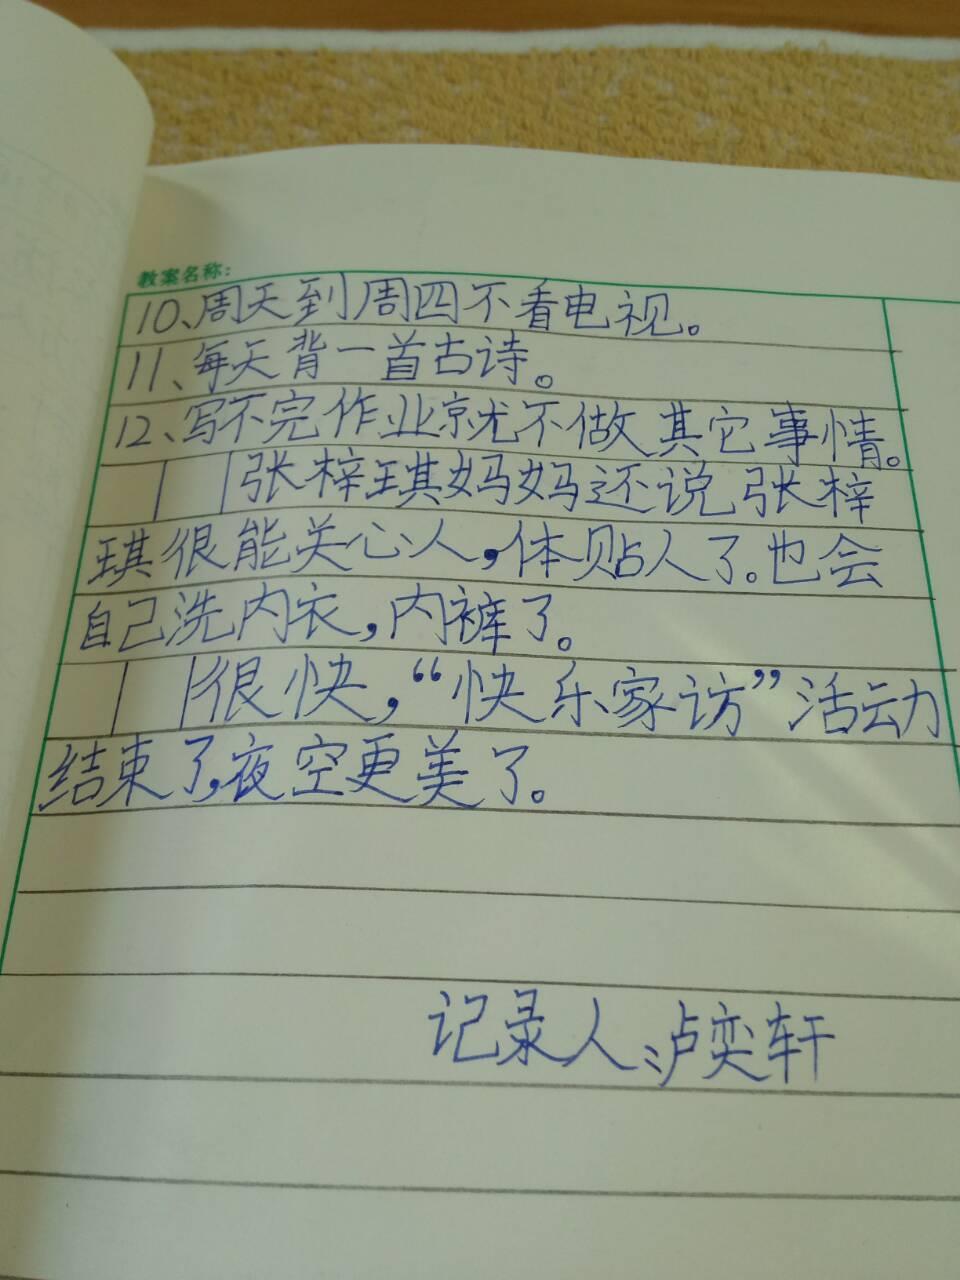 教案名称：
10、周天到周四不看电视。
11、每天背一首古诗。
12、写不完作业就不做其它事情。
张梓琪妈妈还说张梓
琪很能关心人，体贴人了。也会
自己洗内衣，内裤了。
很快，“快乐家访”活动
结束了，夜空更美了。
记录人：卢奕轩